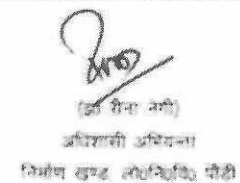 (इं० रीना नेगी)
अधिशासी अभियन्ता
निर्माण खण्ड लो०नि०वि० पौड़ी